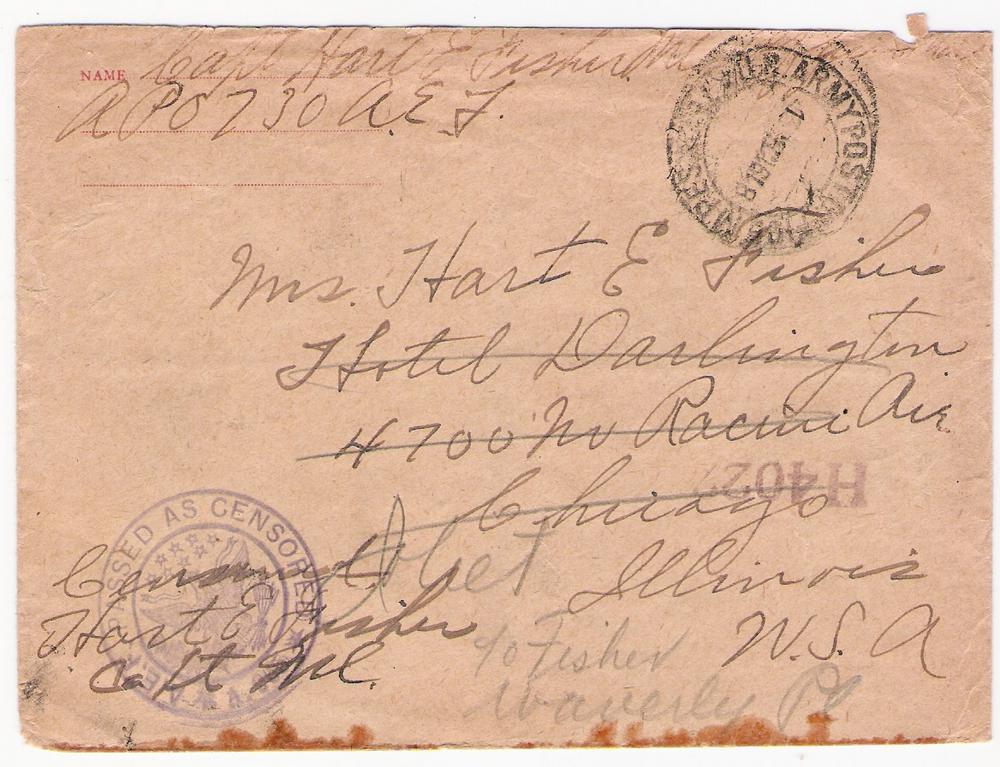 NAME Capt Hart E Fisher
A P O 730 A.E.F.
U.S. ARMY POST
1 DEC 1918
Mrs. Hart E Fisher
Hotel Darlington
4700 No Racine Ave
Chicago
Illinois
U.S.A
H402
PASSED AS CENSORED
Censored
Hart E Fisher
Capt MC.
Joliet
c/o Fisher
Waverly Pl